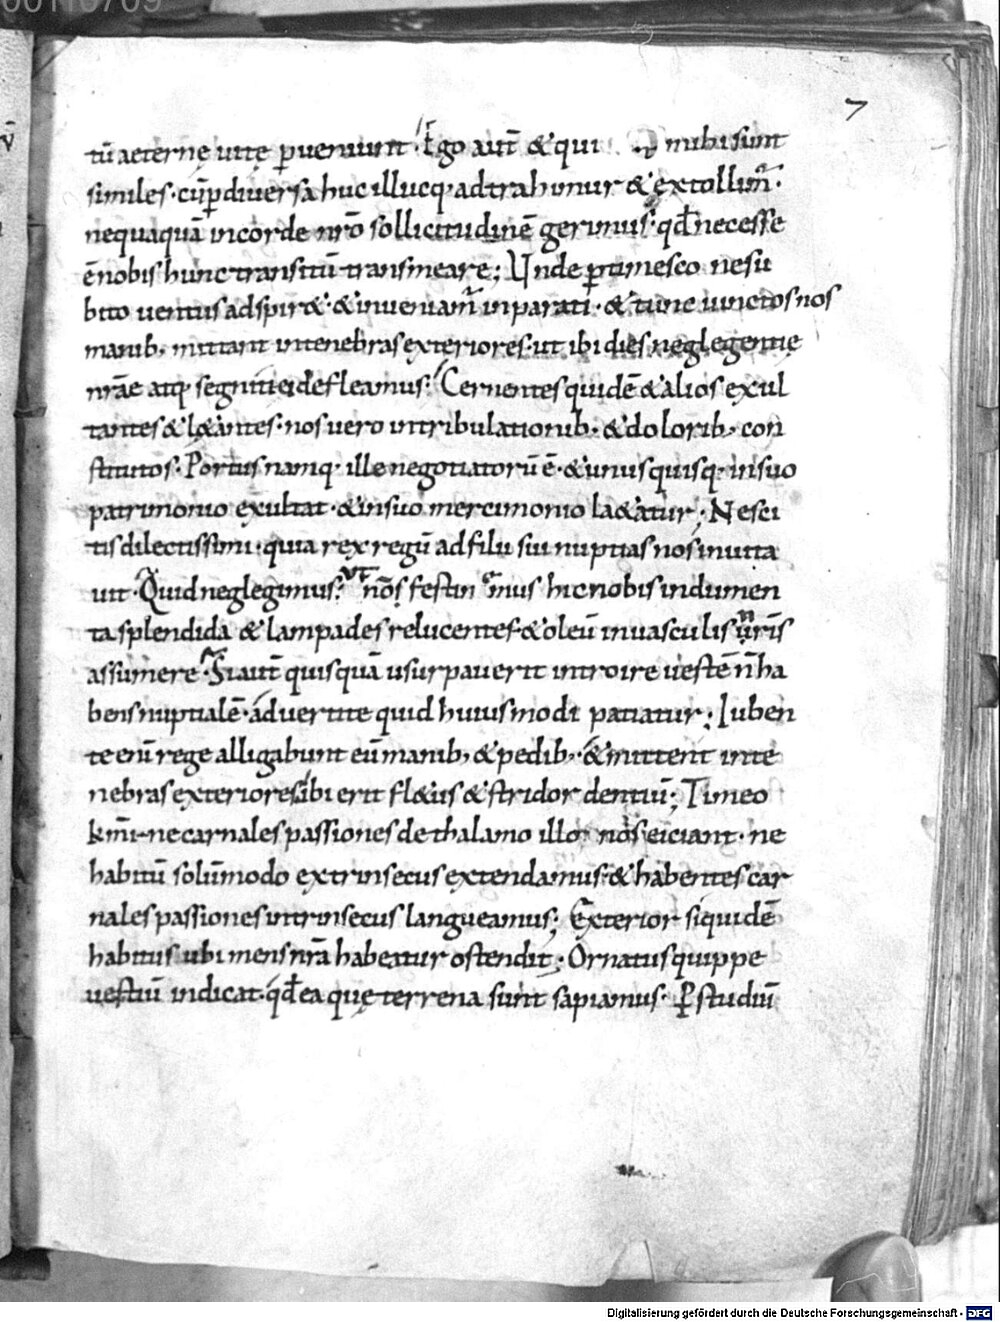 7
tū aeternę uitę ꝑueniunt · Ego aut̄ & qui mihi sunt
similes · cū ꝑ diuersa huc illucq; adtrahimur & extollim̄ ·
nequaquā in corde nr̄o sollicitudinē gerimus · qd̄ necesse
ē nobis hunc transitū transmeare ; Unde ꝑtimesco ne su
bito uentus adspir& · & inueniam̄ inparati · & tunc uinctos nos
manib; mittant in tenebras exteriores · ut ibi dies neglegentię
nr̄ae atq; segnitiei defleamus · Cernentes quidē & alios exul
tantes & l&antes · nos uero in tribulationib; & dolorib; con
stitutos · Portus namq; ille negotiatorū ē · & unusquisq; in suo
patrimonio exultat · & in suo mercimonio la&atur ; Nesci
tis dilectissimi · quia rex regū ad filii sui nuptias nos inuita
uit · Quid neglegimus ; ut nos festinemus hic nobis indumen
ta splendida & lampades relucentes & oleū in uasculis nr̄is
assumere · Si aut̄ quisquā usurpauerit introire uestē n̄ ha
bens nuptialē · aduertite quid huiusmodi patiatur ; Iuben
te enī rege alligabunt eū manib; & pedib; & mittent in te
nebras exteriores ibi erit fl&us & stridor dentiū ; Timeo
km̄i · ne carnales passiones de thalamo illo nos eiciant · ne
habitū solūmodo extrinsecus extendamus · & habentes car
nales passiones intrinsecus langueamus ; Exterior siquidē
habitus ubi mens nr̄a habeatur ostendit ; Ornatus quippe
uestiū indicat · qd̄ ea quę terrena sunt sapiamus · ꝑ studiū
Digitalisierung gefördert durch die Deutsche Forschungsgemeinschaft - DFG